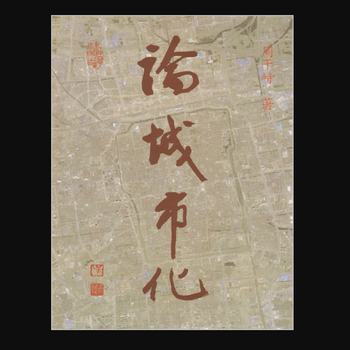 論城市化
周干峙 著